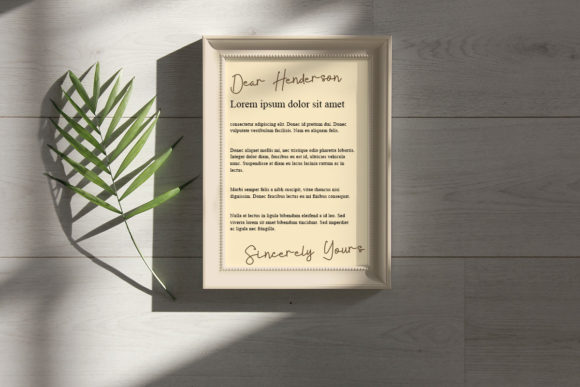 Dear Henderson
Lorem ipsum dolor sit amet
consectetur adipiscing elit. Donec id pretium dui. Donec
vulputate vestibulum facilisis. Nam eu aliquam felis.
Donec aliquet mollis mi, nec tristique odio pharetra lobortis.
Integer dolor diam, faucibus eu est id, ultrices vehicula
nunc. Suspendisse at diam eu lacus lacinia rutrum ac in
lectus.
Morbi semper felis a nibh suscipit, vitae rhoncus nisi
dignissim. Donec faucibus lectus eu mi finibus consequat.
Nulla et lectus in ligula bibendum eleifend a id leo. Sed
viverra lorem sit amet bibendum tincidunt. Sed imperdiet
ac ligula nec fringilla.
Sincerely Yours